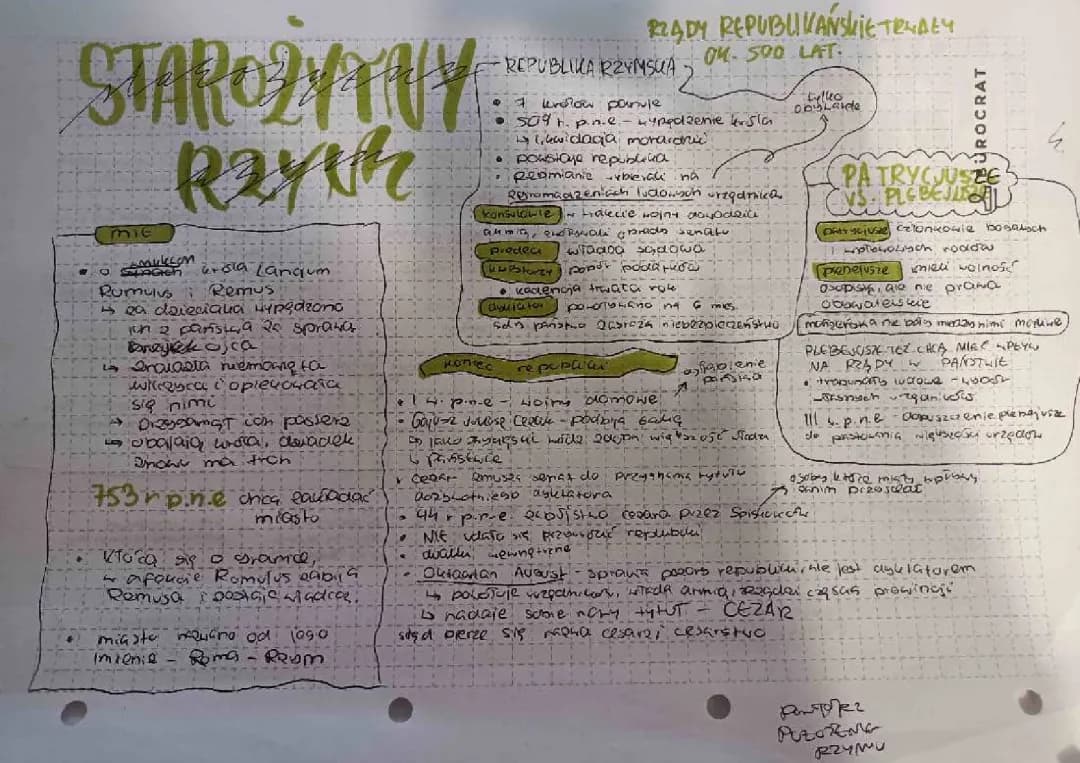 STAROŻYTNY
RZYM
MIT
• o wnukach króla Lancjum
Romulus i Remus
↳ za dzieciaka wypędzono
ich z państwa za sprawą
ojca
↳ znalazła niemowlęta
wilczyca i opiekowała
się nimi
→ przygarnął ich pasterz
↳ obalają króla, dziadek
znowu ma tron
753 r p.n.e chcą zakładać
miasto
• kłócą się o granice,
w afekcie Romulus zabija
Remusa i zostaje władcą.
• miasto nazwano od jego
imienia - Roma - Rzym
RZĄDY REPUBLIKAŃSKIE TRWAŁY
OK. 500 LAT.
REPUBLIKA RZYMSKA
• 7 królów panuje
• 509 r. p.n.e - wypędzenie króla
↳ likwidacja monarchii
• powstaje republika
• Rzymianie wybierali na
zgromadzeniach ludowych urzędników
tylko
obywatele
konsulowie - w trakcie wojny dowodzili
armią, zwoływali obrady senatu
pretorzy władza sądowa
kwestorzy pobór podatków
• kadencja trwała rok
dyktator powoływano na 6 mies.
gdy państwu zagraża niebezpieczeństwo
EUROCRAT
PATRYCJUSZE
VS. PLEBEJUSZE
patrycjusze członkowie bogatych
wpływowych rodów
plebejusze mieli wolność
osobistą, ale nie prawa
obywatelskie
małżeństwa nie były między nimi możliwe
PLEBEJUSZE TEŻ CHCĄ MIEĆ WPŁYW
NA RZĄDY W PAŃSTWIE
• trybunaty ludowe - wybór
własnych urzędników
III w. p.n.e - dopuszczenie plebejuszy
do piastowania większości urzędów
koniec republiki
osłabienie
państwa
• I w. p.n.e - wojny domowe
• Gajusz Juliusz Cezar - podbija Galię
↳ jako zwycięski wódz zdobył większość władzy
w państwie
• Cezar zmusza senat do przyznania tytułu
dożywotniego dyktatora
• 44 r p.n.e. zabójstwo cezara przez spiskowców
osoby, które miały wpływy
zanim przejął
• NIE udało się przywrócić republiki
• walki wewnętrzne
• Oktawian August - sprawia pozory republiki, ale jest dyktatorem
↳ powołuje urzędników, włada armią, zarządza częścią prowincji
↳ nadaje sobie nowy tytuł - CEZAR
stąd bierze się nazwa cesarz i cesarstwo
POŁOŻENIE
RZYMU